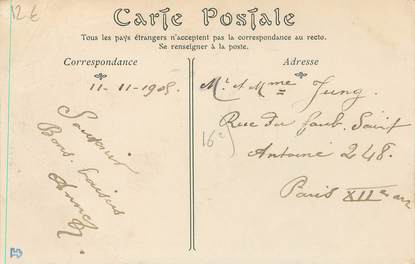 12 €
Carte Postale
Tous les pays étrangers n'acceptent pas la correspondance au recto.
Se renseigner à la poste.
Correspondance
Adresse
11-11-1905
Souvenir
Bons baisers
Mr. et Mme Jung.
Rue du faub. Saint
Antoine 248.
Paris XIIe arr
16e